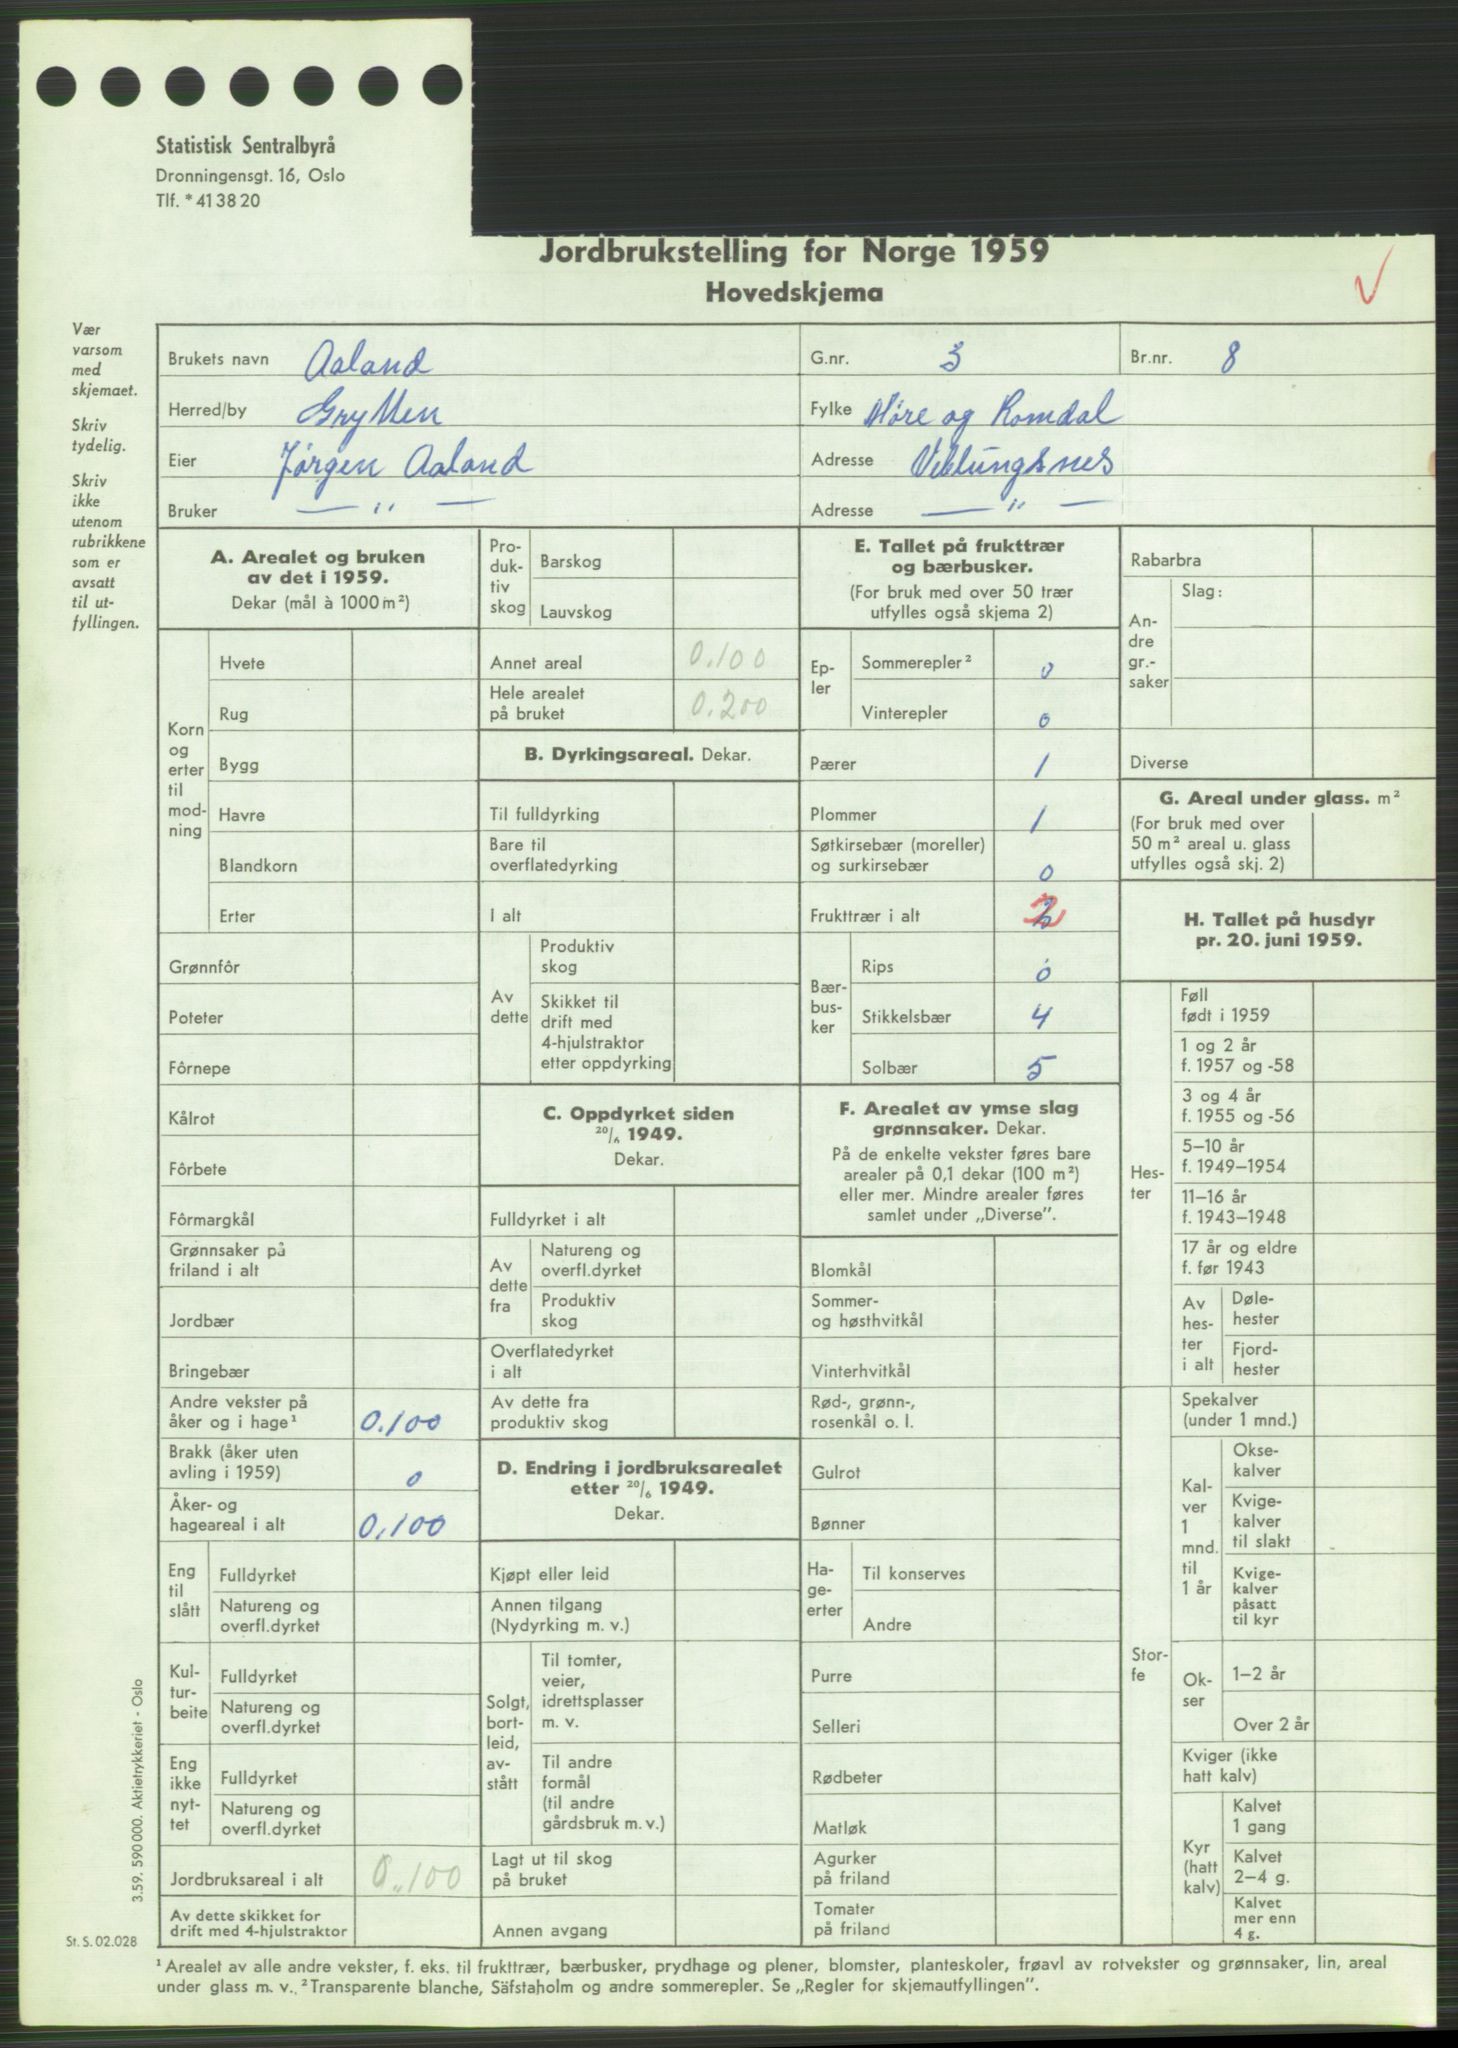 Statistisk Sentralbyrå
Dronningensgt. 16, Oslo
Tlf. * 41 38 20
Jordbrukstelling for Norge 1959
Hovedskjema
Vær
varsom
med
skjemaet.
Skriv
tydelig.
Skriv
ikke
utenom
rubrikkene
som er
avsatt
til ut-
fyllingen.
Brukets navn Aaland G.nr. 3 Br.nr. 8
Herred/by Grytten Fylke Møre og Romdal
Eier Jørgen Aaland Adresse Veblungsnes
Bruker — " — Adresse — " —
A. Arealet og bruken
av det i 1959.
Dekar (mål à 1000 m²)
Korn
og
erter
til
mod-
ning
Hvete
Rug
Bygg
Havre
Blandkorn
Erter
Grønnfôr
Poteter
Fôrnepe
Kålrot
Fôrbete
Fôrmargkål
Grønnsaker på
friland i alt
Jordbær
Bringebær
Andre vekster på
åker og i hage¹ 0.100
Brakk (åker uten
avling i 1959) 0
Åker- og
hageareal i alt 0.100
Eng
til
slått
Fulldyrket
Natureng og
overfl.dyrket
Kul-
tur-
beite
Fulldyrket
Natureng og
overfl.dyrket
Eng
ikke
nyt-
tet
Fulldyrket
Natureng og
overfl.dyrket
Jordbruksareal i alt 0.100
Av dette skikket for
drift med 4-hjulstraktor
Pro-
duk-
tiv
skog
Barskog
Lauvskog
Annet areal 0.100
Hele arealet
på bruket 0.200
B. Dyrkingsareal. Dekar.
Til fulldyrking
Bare til
overflatedyrking
I alt
Av
dette
Produktiv
skog
Skikket til
drift med
4-hjulstraktor
etter oppdyrking
C. Oppdyrket siden
20/6 1949.
Dekar.
Fulldyrket i alt
Av
dette
fra
Natureng og
overfl.dyrket
Produktiv
skog
Overflatedyrket
i alt
Av dette fra
produktiv skog
D. Endring i jordbruksarealet
etter 20/6 1949.
Dekar.
Kjøpt eller leid
Annen tilgang
(Nydyrking m. v.)
Solgt,
bort-
leid,
av-
stått
Til tomter,
veier,
idrettsplasser
m. v.
Til andre
formål
(til andre
gårdsbruk m. v.)
Lagt ut til skog
på bruket
Annen avgang
E. Tallet på frukttrær
og bærbusker.
(For bruk med over 50 trær
utfylles også skjema 2)
Ep-
ler
Sommerepler² 0
Vinterepler 0
Pærer 1
Plommer 1
Søtkirsebær (moreller)
og surkirsebær 0
Frukttrær i alt 2
Bær-
bus-
ker
Rips 0
Stikkelsbær 4
Solbær 5
F. Arealet av ymse slag
grønnsaker. Dekar.
På de enkelte vekster føres bare
arealer på 0,1 dekar (100 m²)
eller mer. Mindre arealer føres
samlet under „Diverse".
Blomkål
Sommer-
og høsthvitkål
Vinterhvitkål
Rød-, grønn-,
rosenkål o. l.
Gulrot
Bønner
Ha-
ge-
erter
Til konserves
Andre
Purre
Selleri
Rødbeter
Matløk
Agurker
på friland
Tomater
på friland
Rabarbra
An-
dre
gr.-
saker
Slag:
Diverse
G. Areal under glass. m²
(For bruk med over
50 m² areal u. glass
utfylles også skj. 2)
H. Tallet på husdyr
pr. 20. juni 1959.
Hes-
ter
Føll
født i 1959
1 og 2 år
f. 1957 og -58
3 og 4 år
f. 1955 og -56
5–10 år
f. 1949–1954
11–16 år
f. 1943–1948
17 år og eldre
f. før 1943
Av
hes-
ter
i alt
Døle-
hester
Fjord-
hester
Stor-
fe
Spekalver
(under 1 mnd.)
Kal-
ver
1
mnd.
til
1 år
Okse-
kalver
Kvige-
kalver
til slakt
Kvige-
kalver
påsatt
til kyr
Ok-
ser
1–2 år
Over 2 år
Kviger (ikke
hatt kalv)
Kyr
(hatt
kalv)
Kalvet
1 gang
Kalvet
2–4 g.
Kalvet
mer enn
4 g.
3.59. 590 000. Aktietrykkeriet - Oslo
St. S. 02.028
¹ Arealet av alle andre vekster, f. eks. til frukttrær, bærbusker, prydhage og plener, blomster, planteskoler, frøavl av rotvekster og grønnsaker, lin, areal
under glass m. v. ² Transparente blanche, Säfstaholm og andre sommerepler. Se „Regler for skjemautfyllingen".